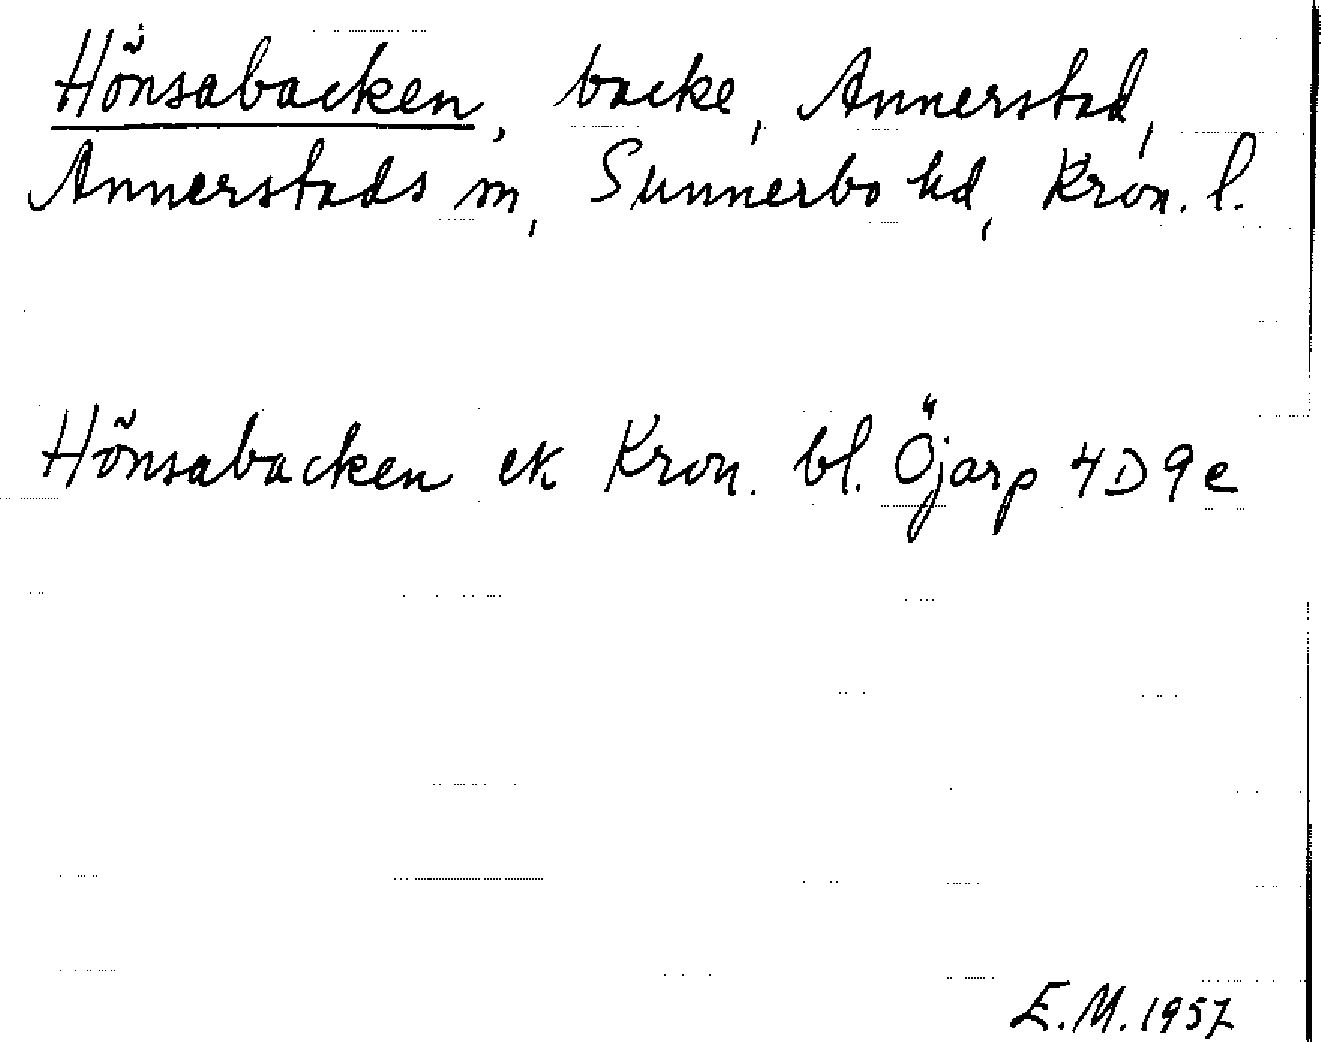 Hönsabacken, backe, Annerstad,
Annerstads sn, Sunnerbo hd, Kron. l.
Hönsabacken ek Kron. bl. Öjarp 4D9e
E.M. 1957